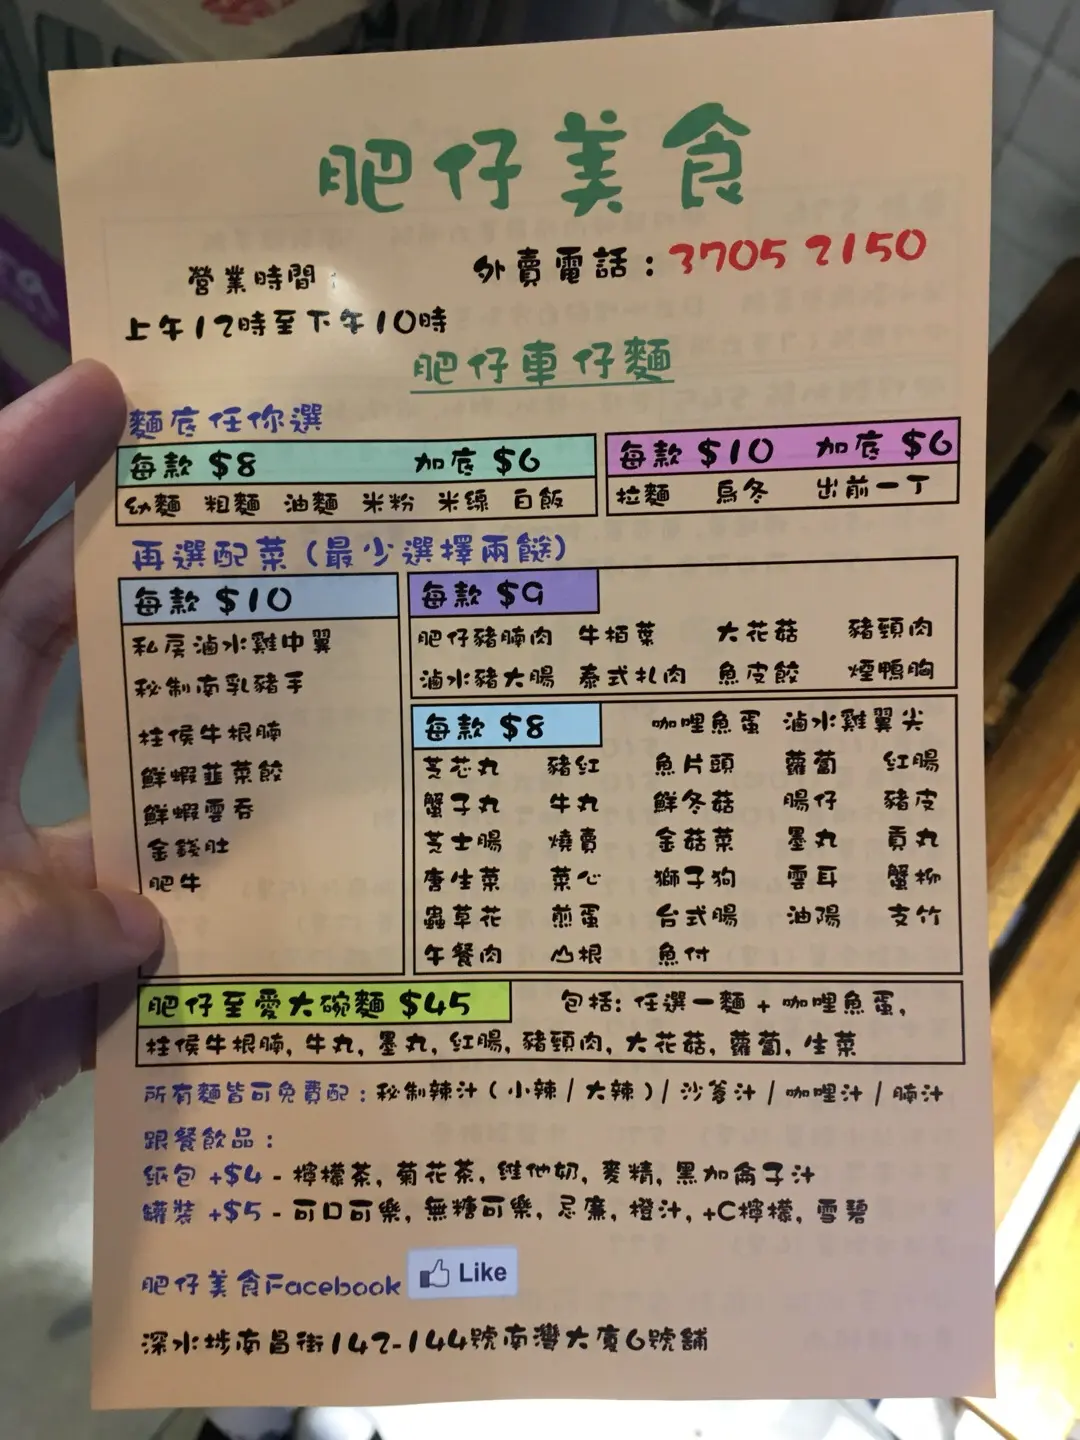 肥仔美食
營業時間：
外賣電話：3705 2150
上午12時至下午10時
肥仔車仔麵
麵底任你選
每款 $8 加底 $6
幼麵 粗麵 油麵 米粉 米線 白飯
每款 $10 加底 $6
拉麵 烏冬 出前一丁
再選配菜（最少選擇兩餸）
每款 $10
私房滷水雞中翼
秘制南乳豬手
柱侯牛根腩
鮮蝦韮菜餃
鮮蝦雲吞
金錢肚
肥牛
每款 $9
肥仔豬腩肉 牛栢葉 大花菇 豬頸肉
滷水豬大腸 泰式扎肉 魚皮餃 煙鴨胸
每款 $8 咖哩魚蛋 滷水雞翼尖
芝芯丸 豬紅 魚片頭 蘿蔔 紅腸
蟹子丸 牛丸 鮮冬菇 腸仔 豬皮
芝士腸 燒賣 金菇菜 墨丸 貢丸
唐生菜 菜心 獅子狗 雲耳 蟹柳
蟲草花 煎蛋 台式腸 油隝 支竹
午餐肉 凸根 魚付
肥仔至愛大碗麵 $45 包括: 任選一麵 + 咖哩魚蛋,
柱侯牛根腩, 牛丸, 墨丸, 紅腸, 豬頸肉, 大花菇, 蘿蔔, 生菜
所有麵皆可免費配：秘制辣汁（小辣 / 大辣）/ 沙爹汁 / 咖哩汁 / 腩汁
跟餐飲品：
紙包 +$4 - 檸檬茶, 菊花茶, 維他奶, 麥精, 黑加侖子汁
罐裝 +$5 - 可口可樂, 無糖可樂, 忌廉, 橙汁, +C檸檬, 雪碧
肥仔美食Facebook Like
深水埗南昌街142-144號南灣大廈6號舖